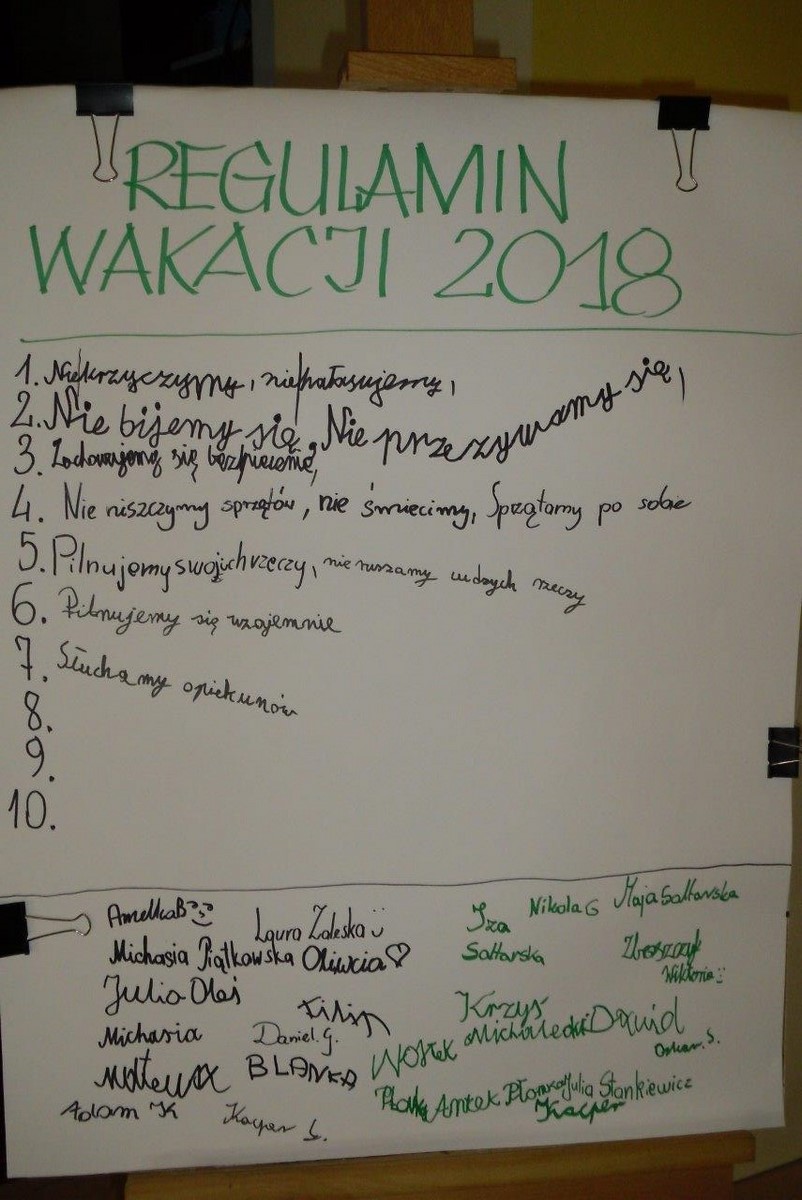 REGULAMIN
WAKACJI 2018
1. Nie|krzyczymy, nie|hałasujemy,
2. Nie bijemy się, Nie przezywamy się,
3. Zachowujemy się bezpiecznie,
4. Nie niszczymy sprzętów, nie śmiecimy, Sprzątamy po sobie
5. Pilnujemy swojich rzeczy, nie ruszamy cudzych rzeczy
6. Pilnujemy się wzajemnie
7. Słuchamy opiekunów
8.
9.
10.
AmelkaB
Laura Zaleska
Iza
Nikola G
Maja Sałtarska
Michasia Piątkowska Oliwcia
Sałtarska
Wiktoria
Julia Oleś
Filip
Krzyś
Michasia
Daniel. G.
Dawid
Oskar. S.
Mateusz
BLANKA
Wojtek
Antek
Julia Stankiewicz
Adam K
Kacper S.
Kacper